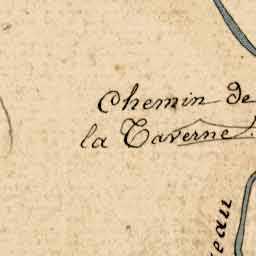 Chemin de
la Taverne.
eau